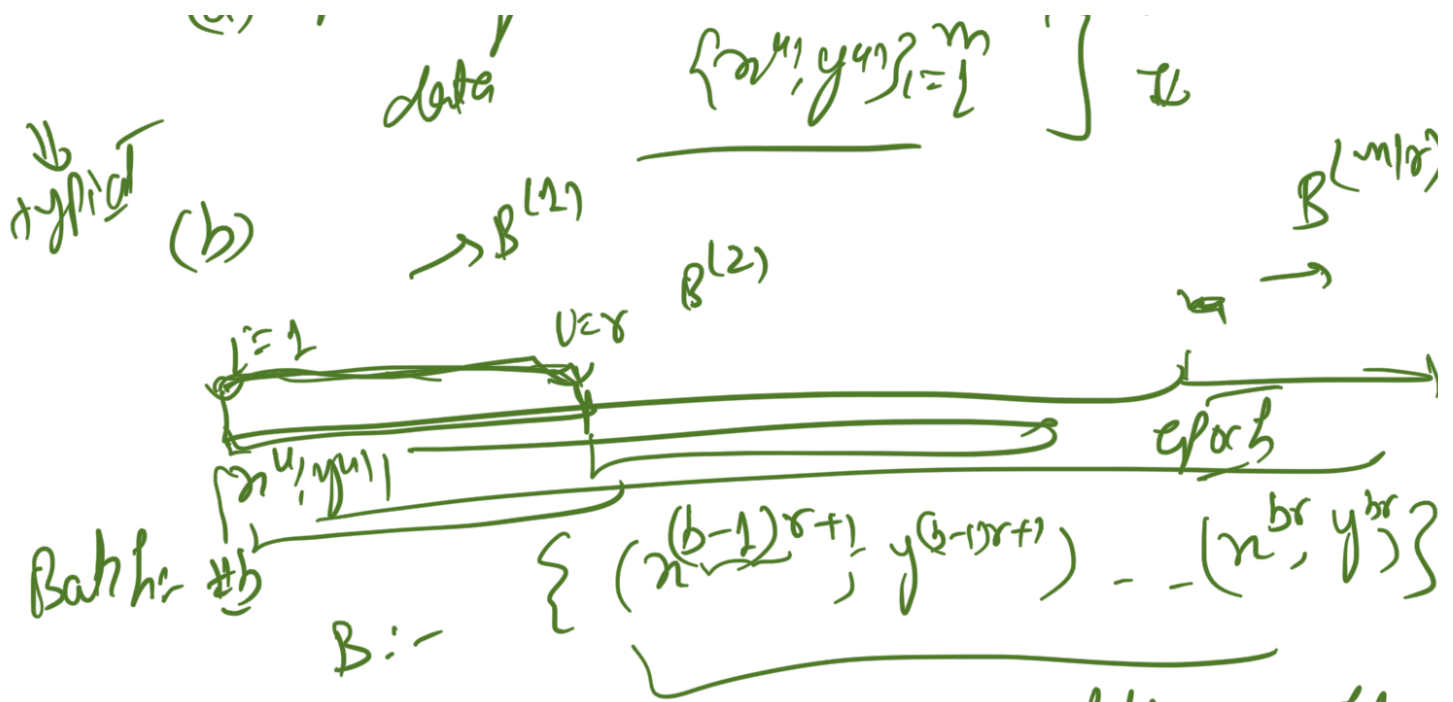 (a)
data {x^(i), y^(i)}_{i=1}^m ]
typical
(b) → B^(1) B^(2) B^(m/r) →
i=1 i=r
epoch
x^(i), y^(i)
Batch:- #b { (x^(b-1)r+1, y^(b-1)r+1) - - (x^br, y^br) }
B :-